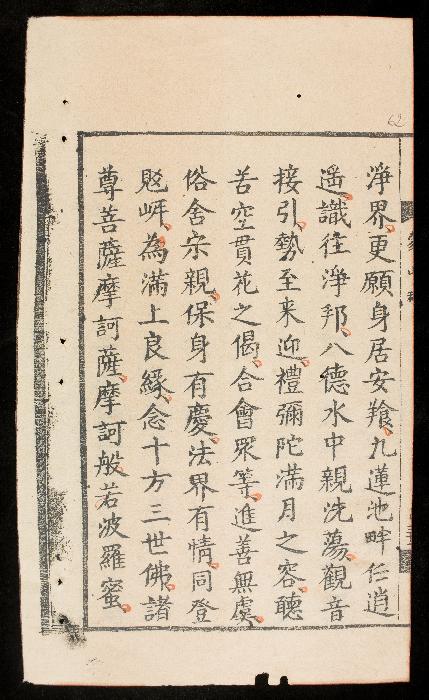 淨界更願身居安養九蓮池畔任逍
遥識徃淨邦八德水中親洗蕩觀音
接引勢至来迎禮彌陀滿月之容聽
苦空貫花之偈合會眾等進善無虞
俗舍宗親保身有慶法界有情同登
彼岸為滿上良緣念十方三世佛諸
尊菩薩摩訶薩摩訶般若波羅蜜
62